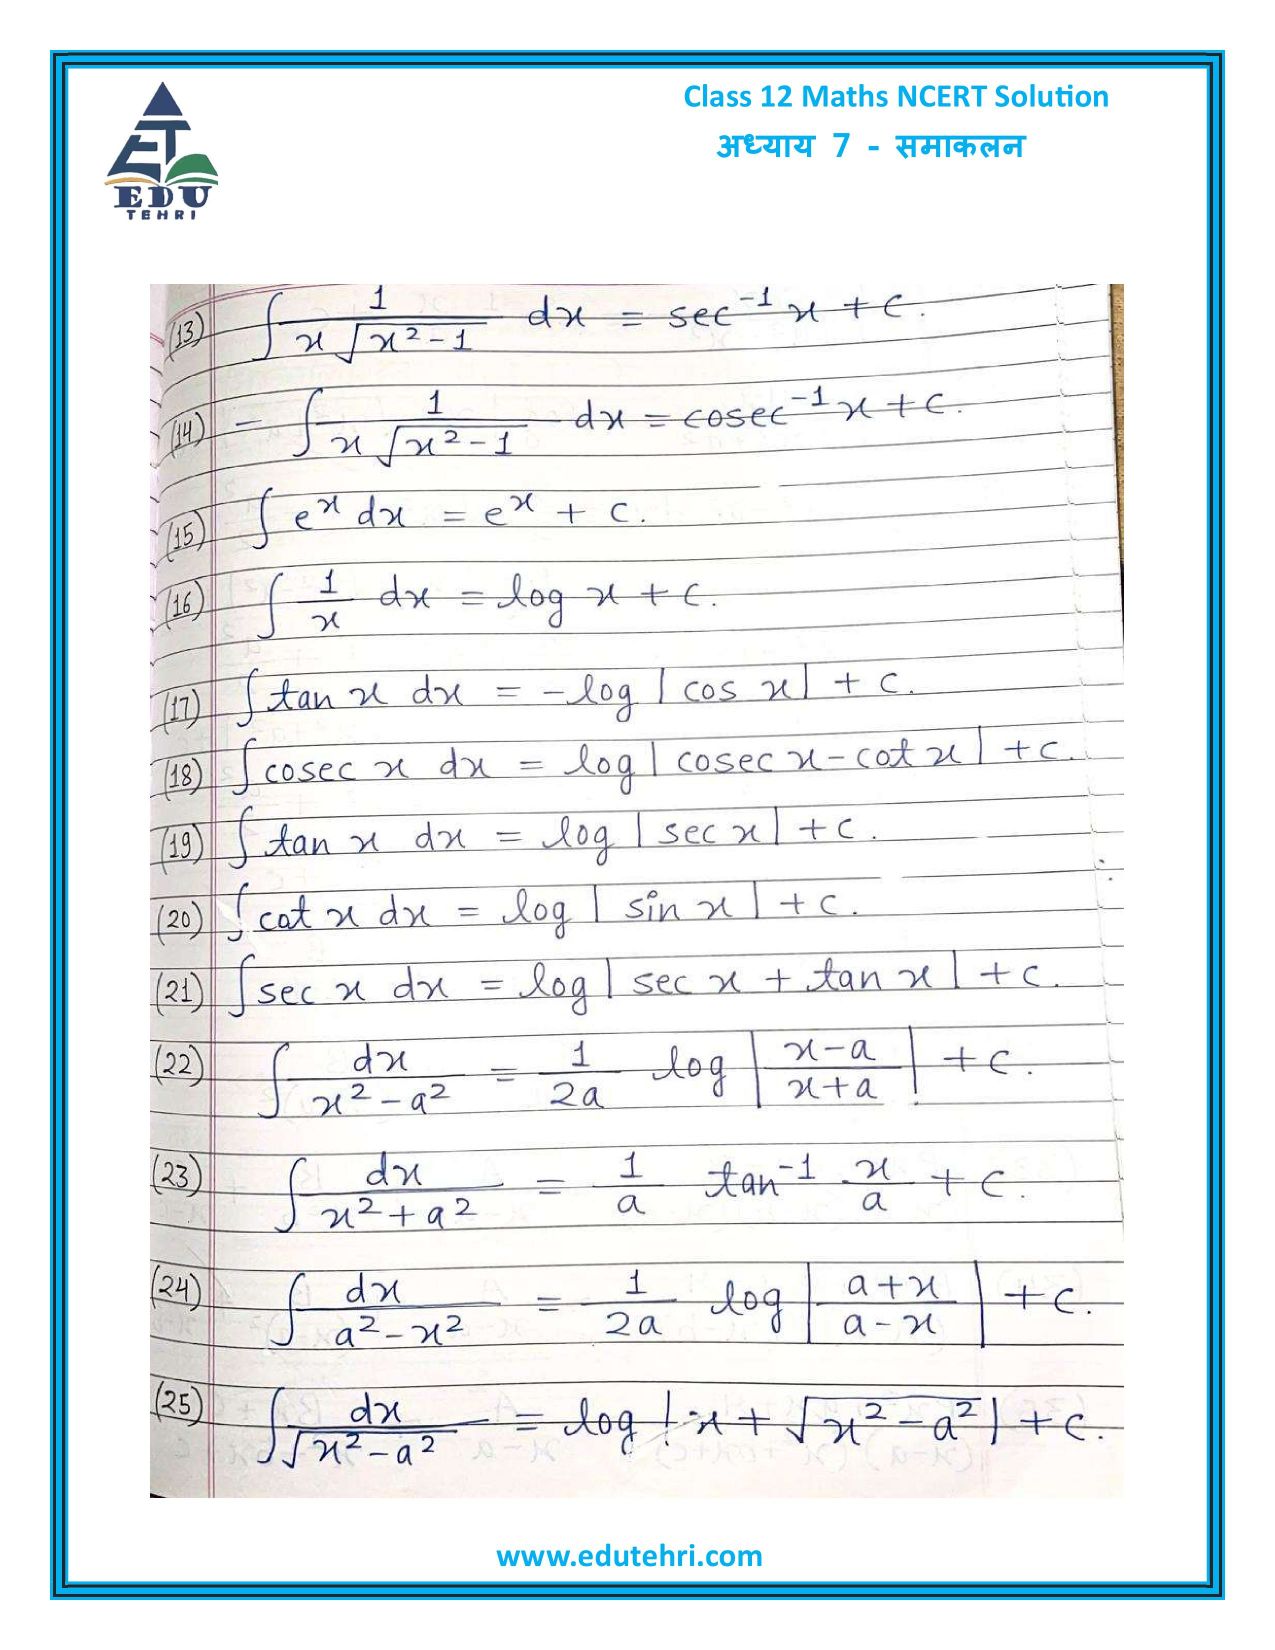 Class 12 Maths NCERT Solution
अध्याय 7 - समाकलन
EDU
TEHRI
(13) ∫ 1/(x√(x²-1)) dx = sec⁻¹ x + c.
(14) - ∫ 1/(x√(x²-1)) dx = cosec⁻¹ x + c.
(15) ∫ eˣ dx = eˣ + c.
(16) ∫ 1/x dx = log x + c.
(17) ∫ tan x dx = -log | cos x | + c.
(18) ∫ cosec x dx = log | cosec x - cot x | + c.
(19) ∫ tan x dx = log | sec x | + c.
(20) ∫ cot x dx = log | sin x | + c.
(21) ∫ sec x dx = log | sec x + tan x | + c.
(22) ∫ dx/(x²-a²) = 1/2a log | (x-a)/(x+a) | + c.
(23) ∫ dx/(x²+a²) = 1/a tan⁻¹ x/a + c.
(24) ∫ dx/(a²-x²) = 1/2a log | (a+x)/(a-x) | + c.
(25) ∫ dx/√(x²-a²) = log | x + √(x²-a²) | + c.
www.edutehri.com